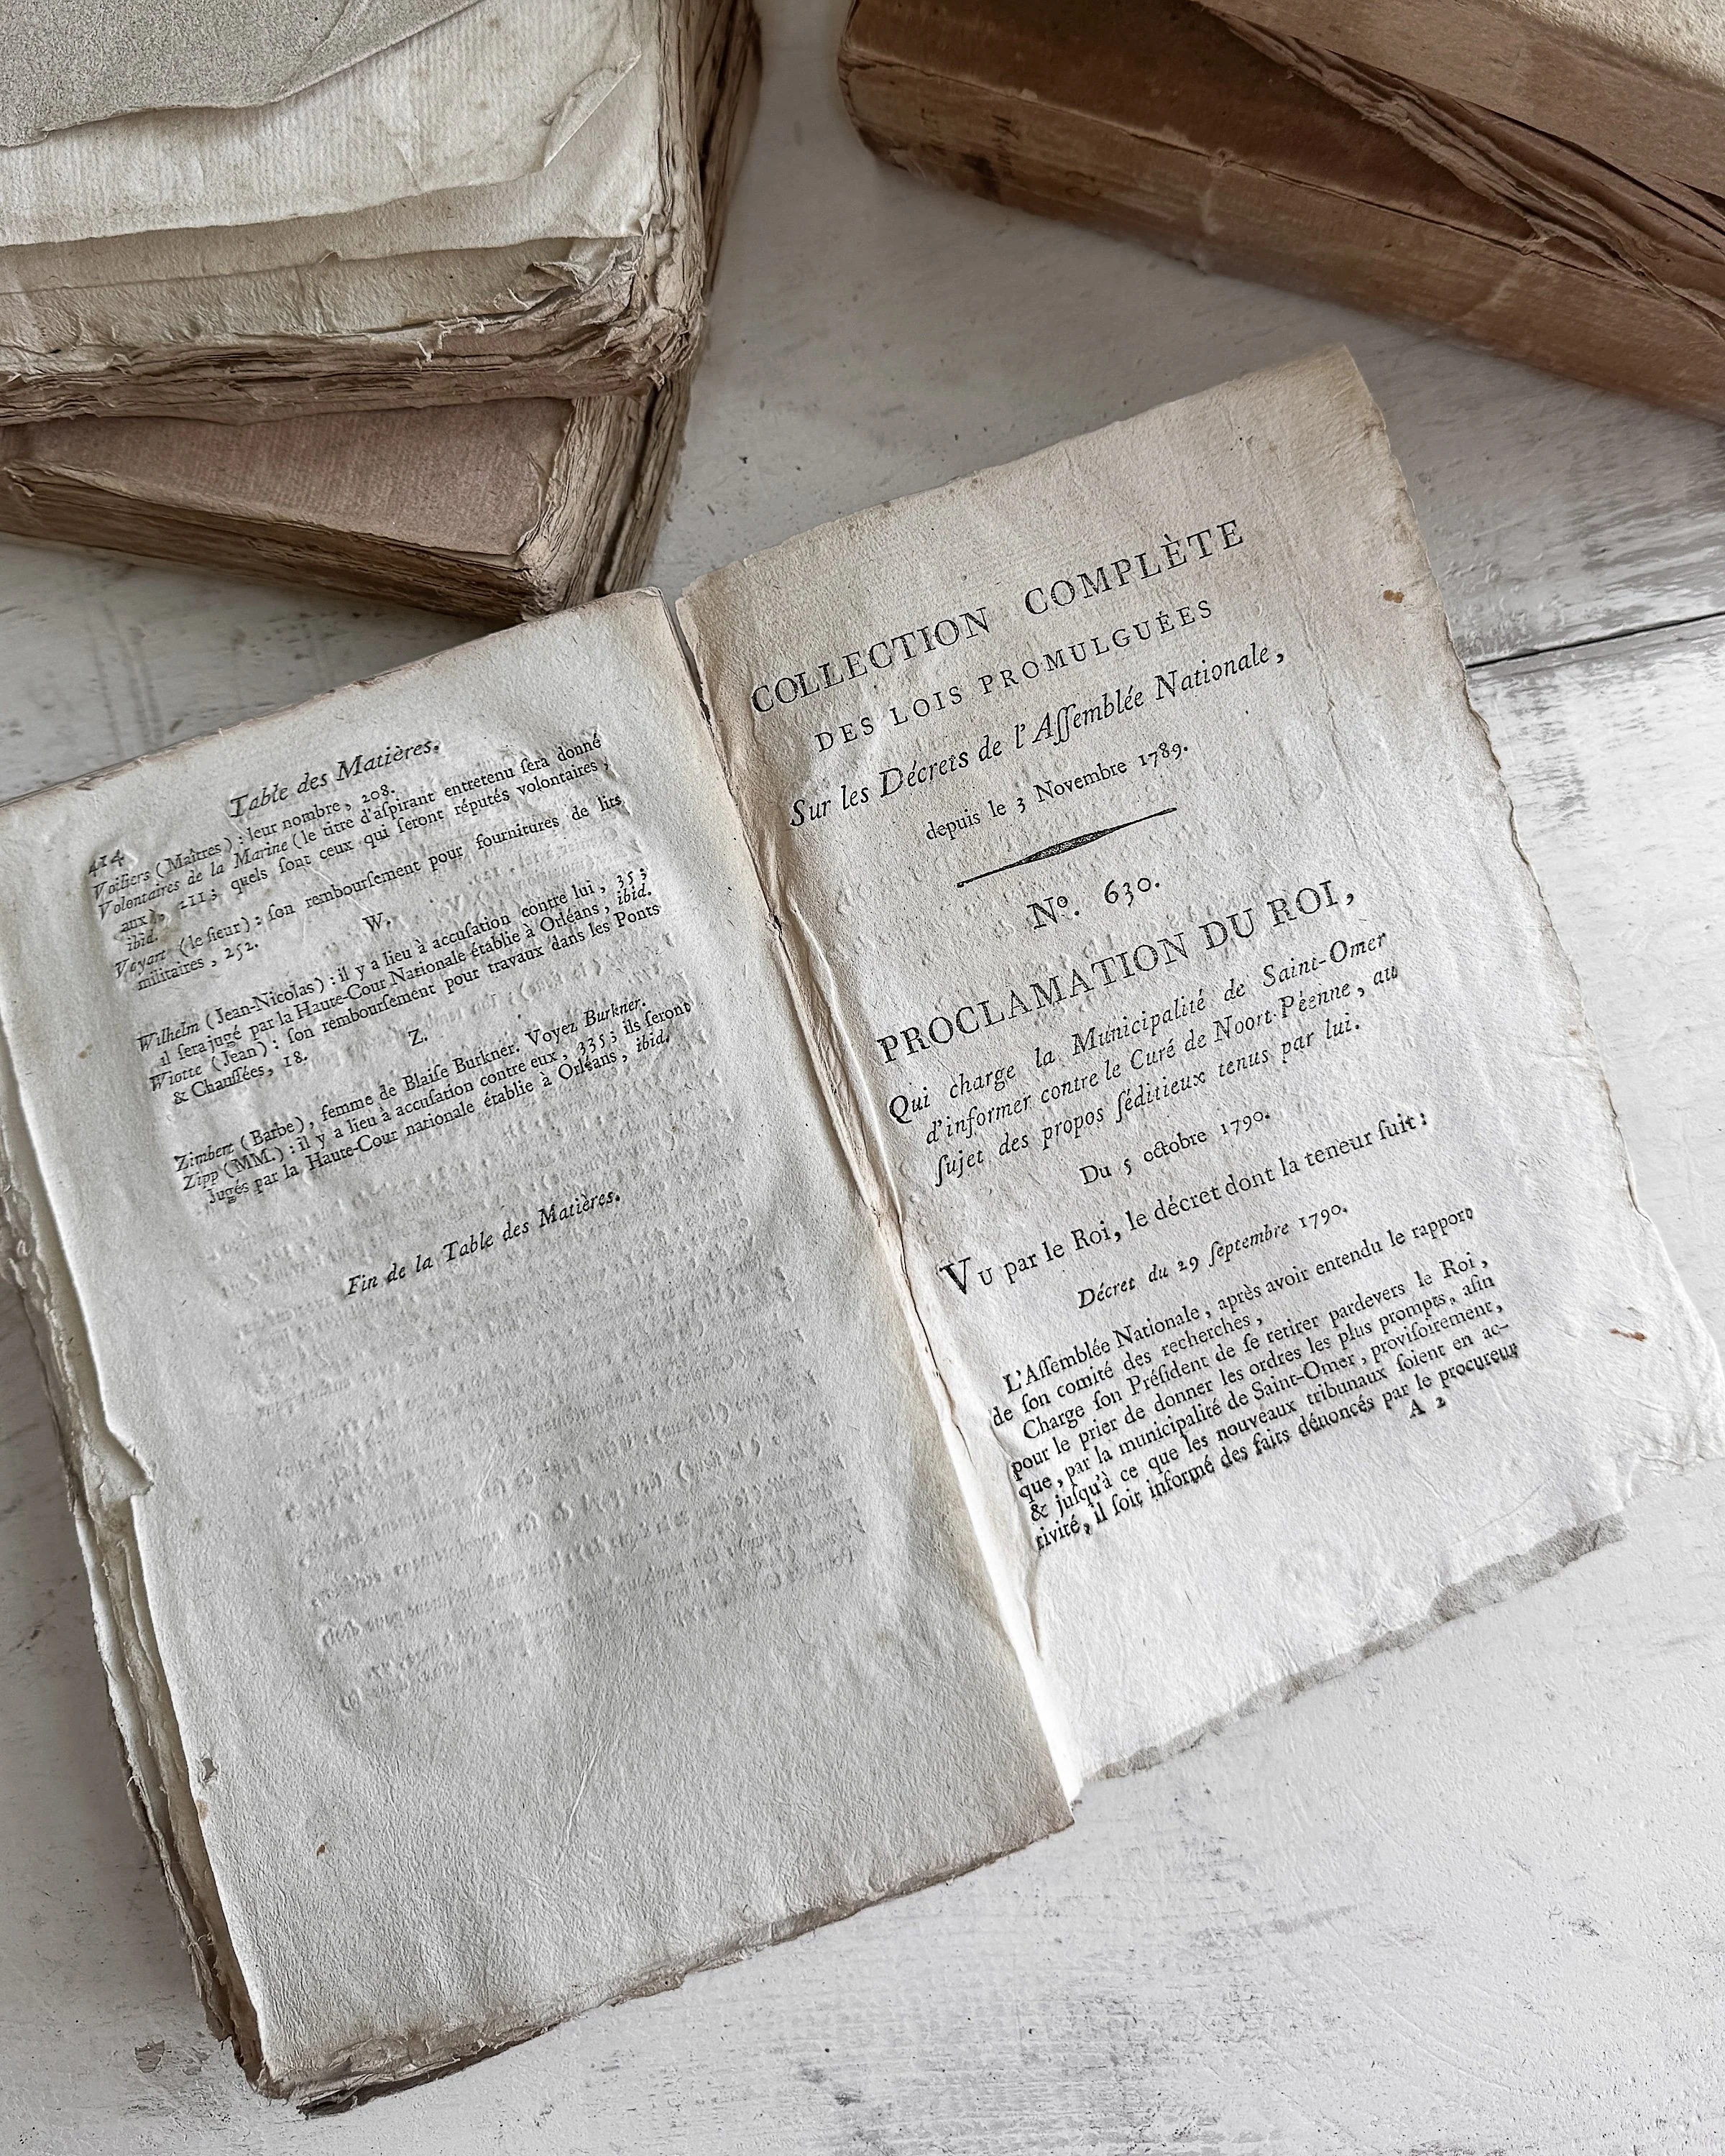 414
Table des Matières.
Voiliers (Maîtres) : leur nombre, 208.
Volontaires de la Marine (le titre d'aſpirant entretenu ſera donné
aux), 211 ; quels ſont ceux qui ſeront réputés volontaires,
ibid.
Veyart (le ſieur) : ſon rembourſement pour fournitures de lits
militaires, 252.
W.
Wilhelm (Jean-Nicolas) : il y a lieu à accuſation contre lui, 35 ;
il ſera jugé par la Haute-Cour Nationale établie à Orléans, ibid.
Wiotte (Jean) : ſon rembourſement pour travaux dans les Ponts
& Chauſſées, 18.
Z.
Zimbert (Barbe), femme de Blaiſe Burkner. Voyez Burkner.
Zipp (MM.) : il y a lieu à accuſation contre eux, 335 ; ils ſeront
jugés par la Haute-Cour nationale établie à Orléans, ibid.
Fin de la Table des Matières.
COLLECTION COMPLÈTE
DES LOIS PROMULGUÉES
Sur les Décrets de l'Aſſemblée Nationale,
depuis le 3 Novembre 1789.
Nº. 630.
PROCLAMATION DU ROI,
Qui charge la Municipalité de Saint-Omer
d'informer contre le Curé de Noort-Péenne, au
ſujet des propos ſéditieux tenus par lui.
Du 5 octobre 1790.
VU par le Roi, le décret dont la teneur ſuit :
Décret du 29 ſeptembre 1790.
L'Aſſemblée Nationale, après avoir entendu le rapport
de ſon comité des recherches,
Charge ſon Préſident de ſe retirer pardevers le Roi,
pour le prier de donner les ordres les plus prompts, afin
que, par la municipalité de Saint-Omer, proviſoirement,
& juſqu'à ce que les nouveaux tribunaux ſoient en ac-
tivité, il ſoit informé des faits dénoncés par le procureur
A 2